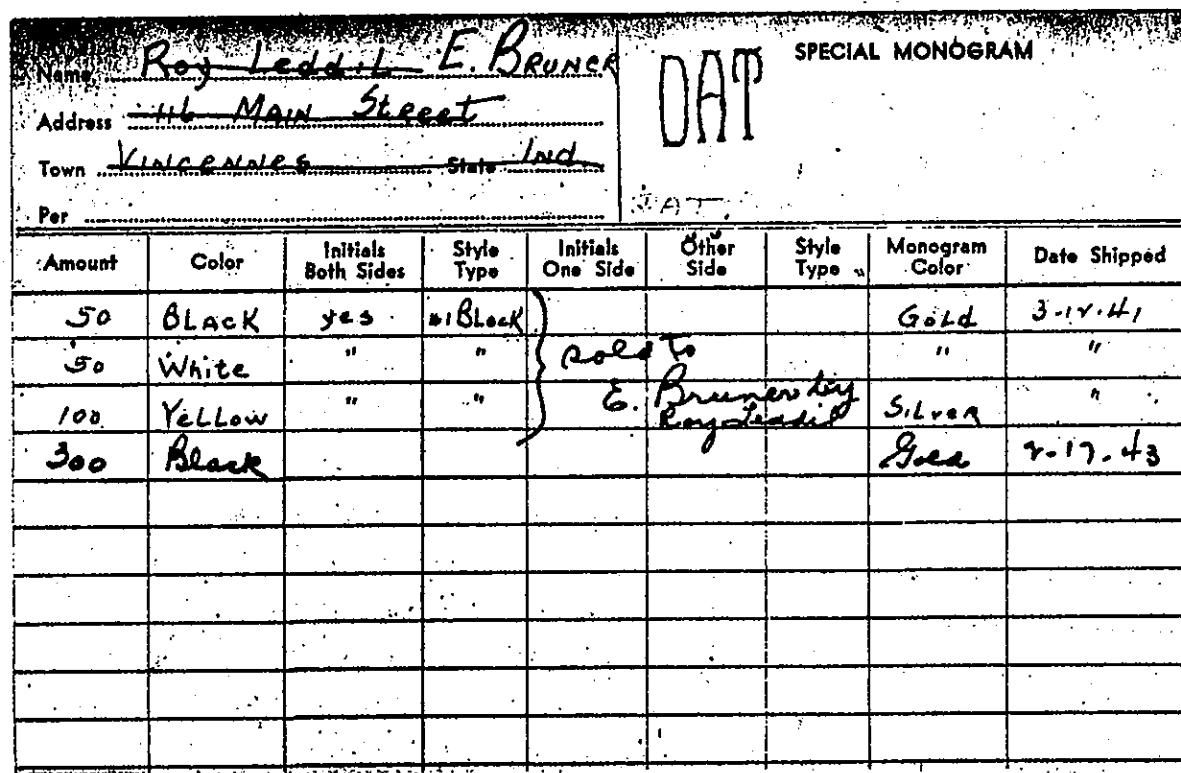 Name Roy Leddil E. BRUNER
Address 116 MAIN Street
Town VINCENNES State Ind.
Per
DAT
SPECIAL MONOGRAM
DAT
Amount Color Initials Both Sides Style Type Initials One Side Other Side Style Type Monogram Color Date Shipped
50 BLACK yes #1 BLock GoLd 3-12-41
50 White " " sold to " "
100 YeLLow " " E. Bruner by Roy Leddil SiLveR "
300 Black Gold 2-17-43